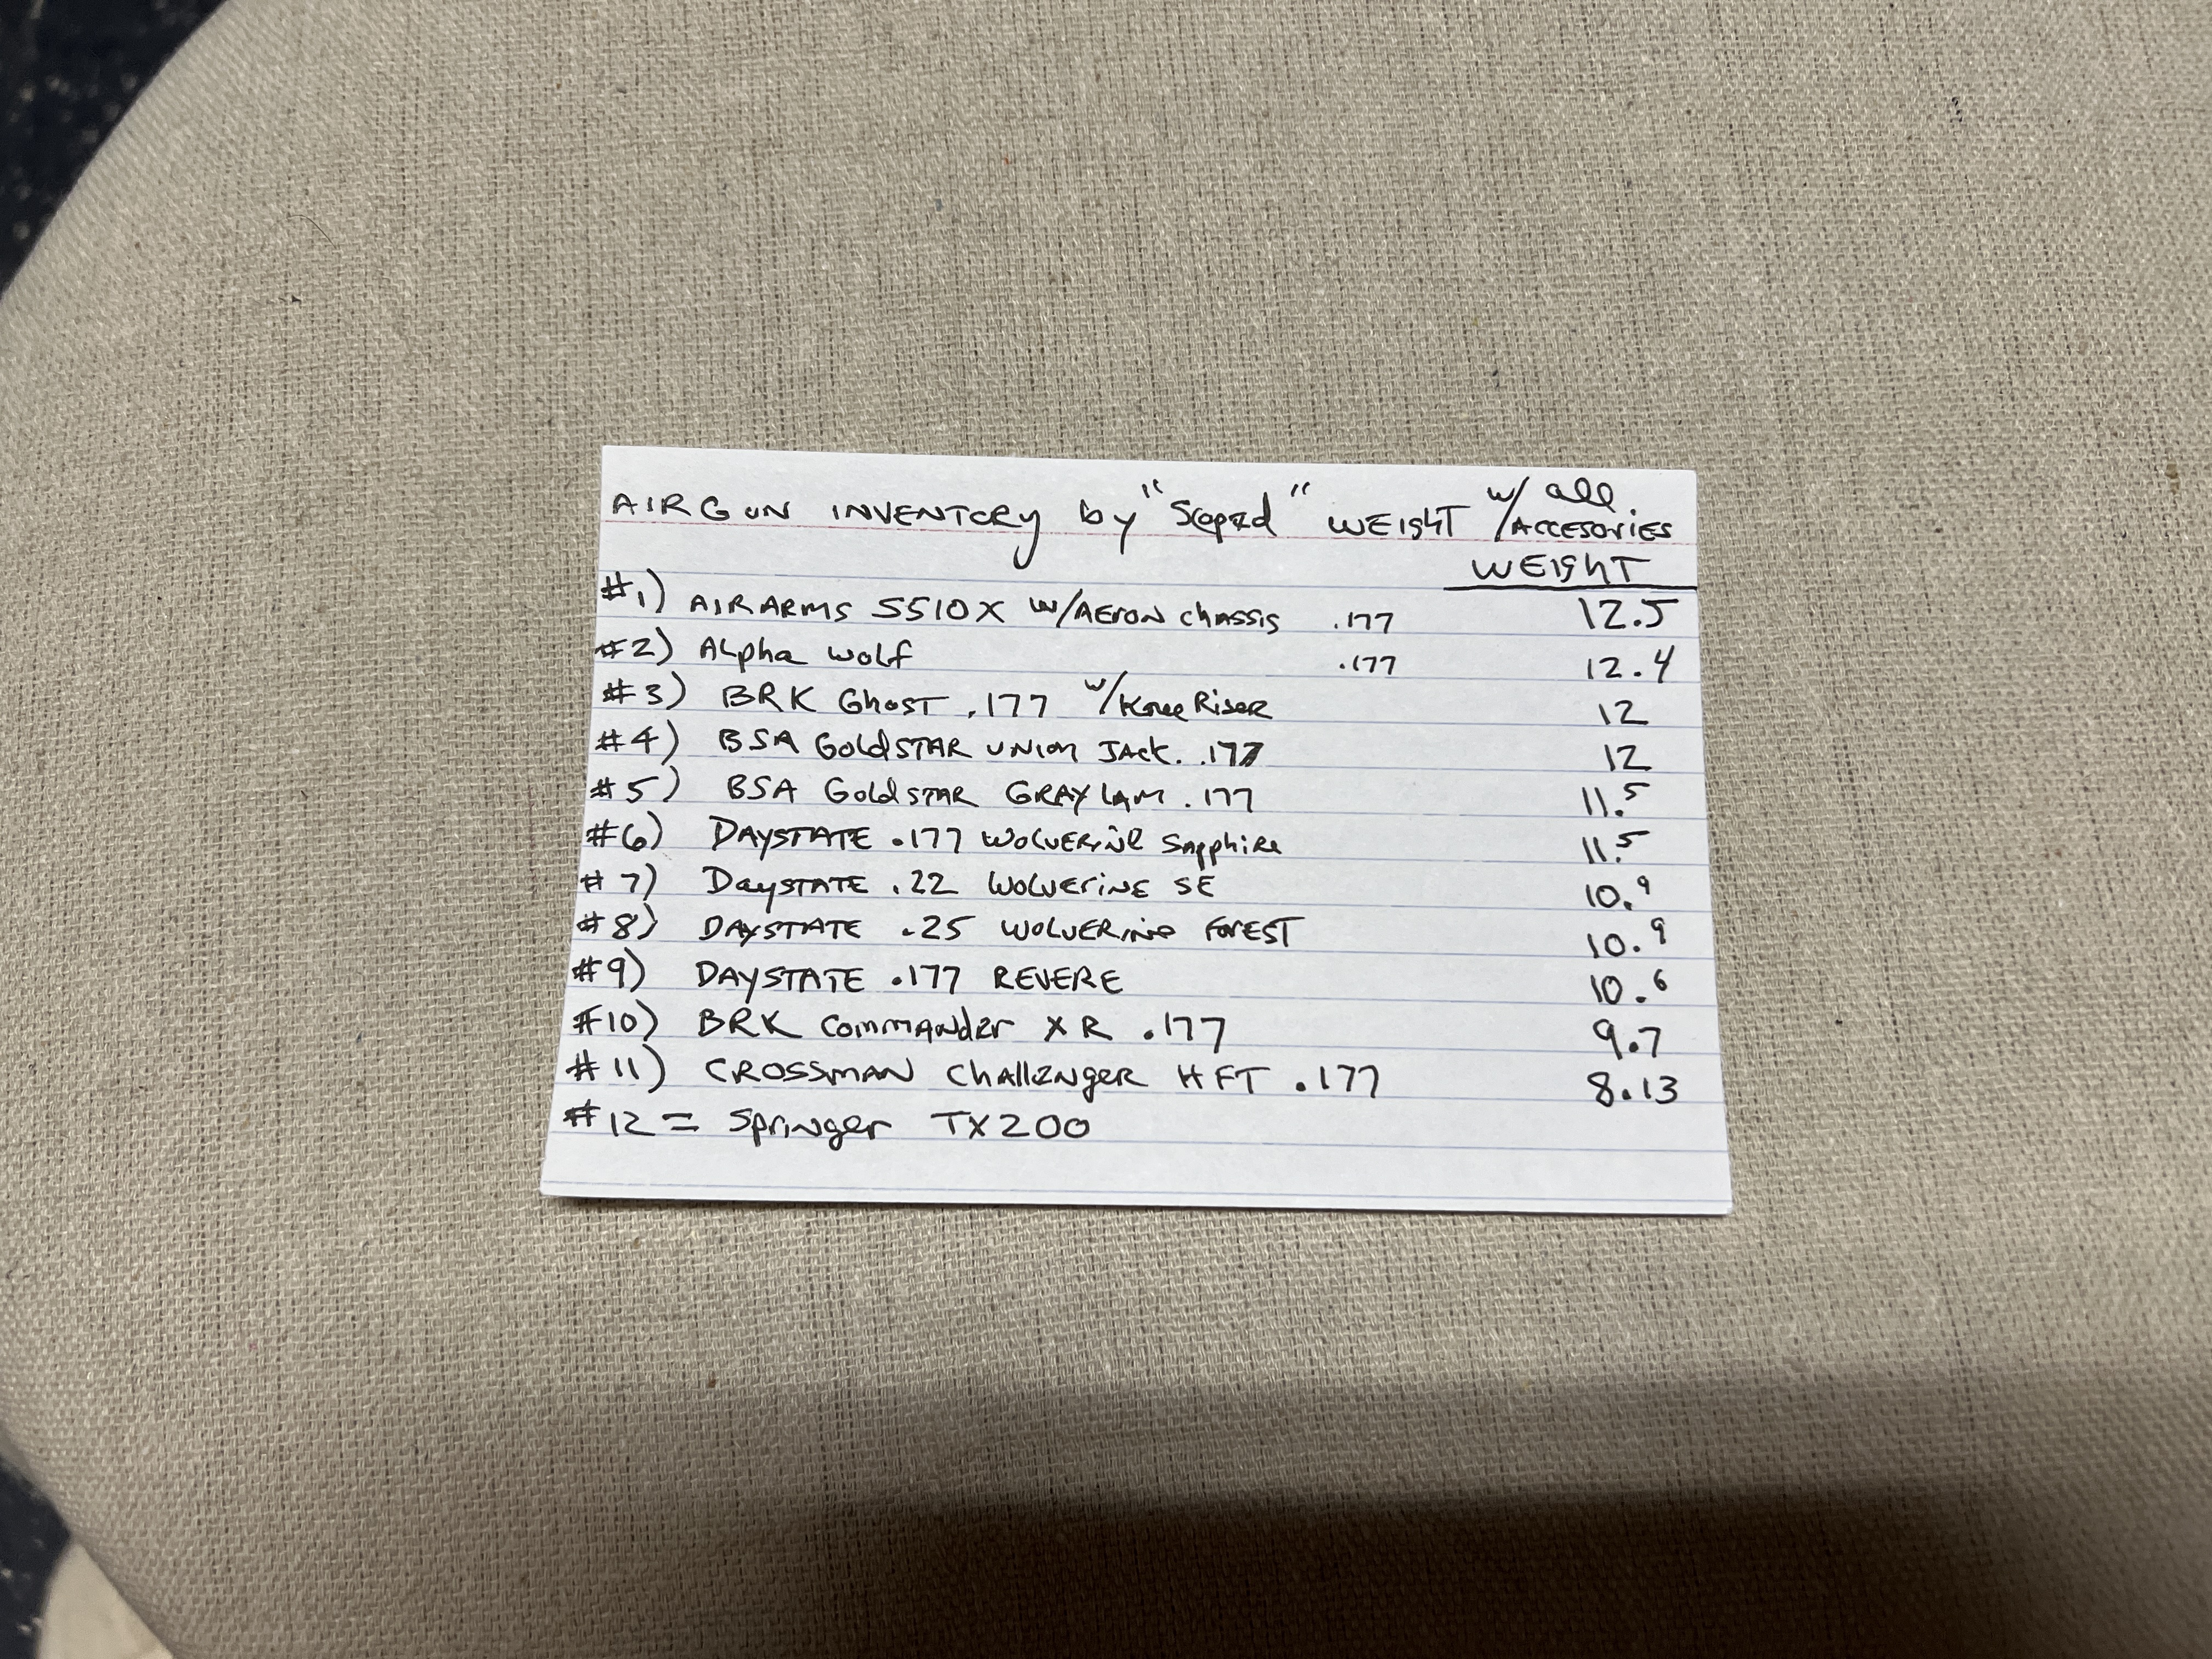 AIRGUN INVENTORY by "Scoped" WEIGHT w/ all
w/ACCESORIES
WEIGHT
#1) AIRARMS S510X w/AERON chassis .177 12.5
#2) ALpha wolf .177 12.4
#3) BRK GhosT .177 w/Knee Riser 12
#4) BSA GOLDSTAR UNION JACK. .177 12
#5) BSA GoldSTAR GRAY LAM .177 11.5
#6) DAYSTATE .177 WOLVERINE Sapphire 11.5
#7) DaySTATE .22 WOLVERINE SE 10.9
#8) DAYSTATE .25 WOLVERINE FOREST 10.9
#9) DAYSTATE .177 REVERE 10.6
#10) BRK Commander XR .177 9.7
#11) CROSSMAN Challenger HFT .177 8.13
#12 = Springer TX200